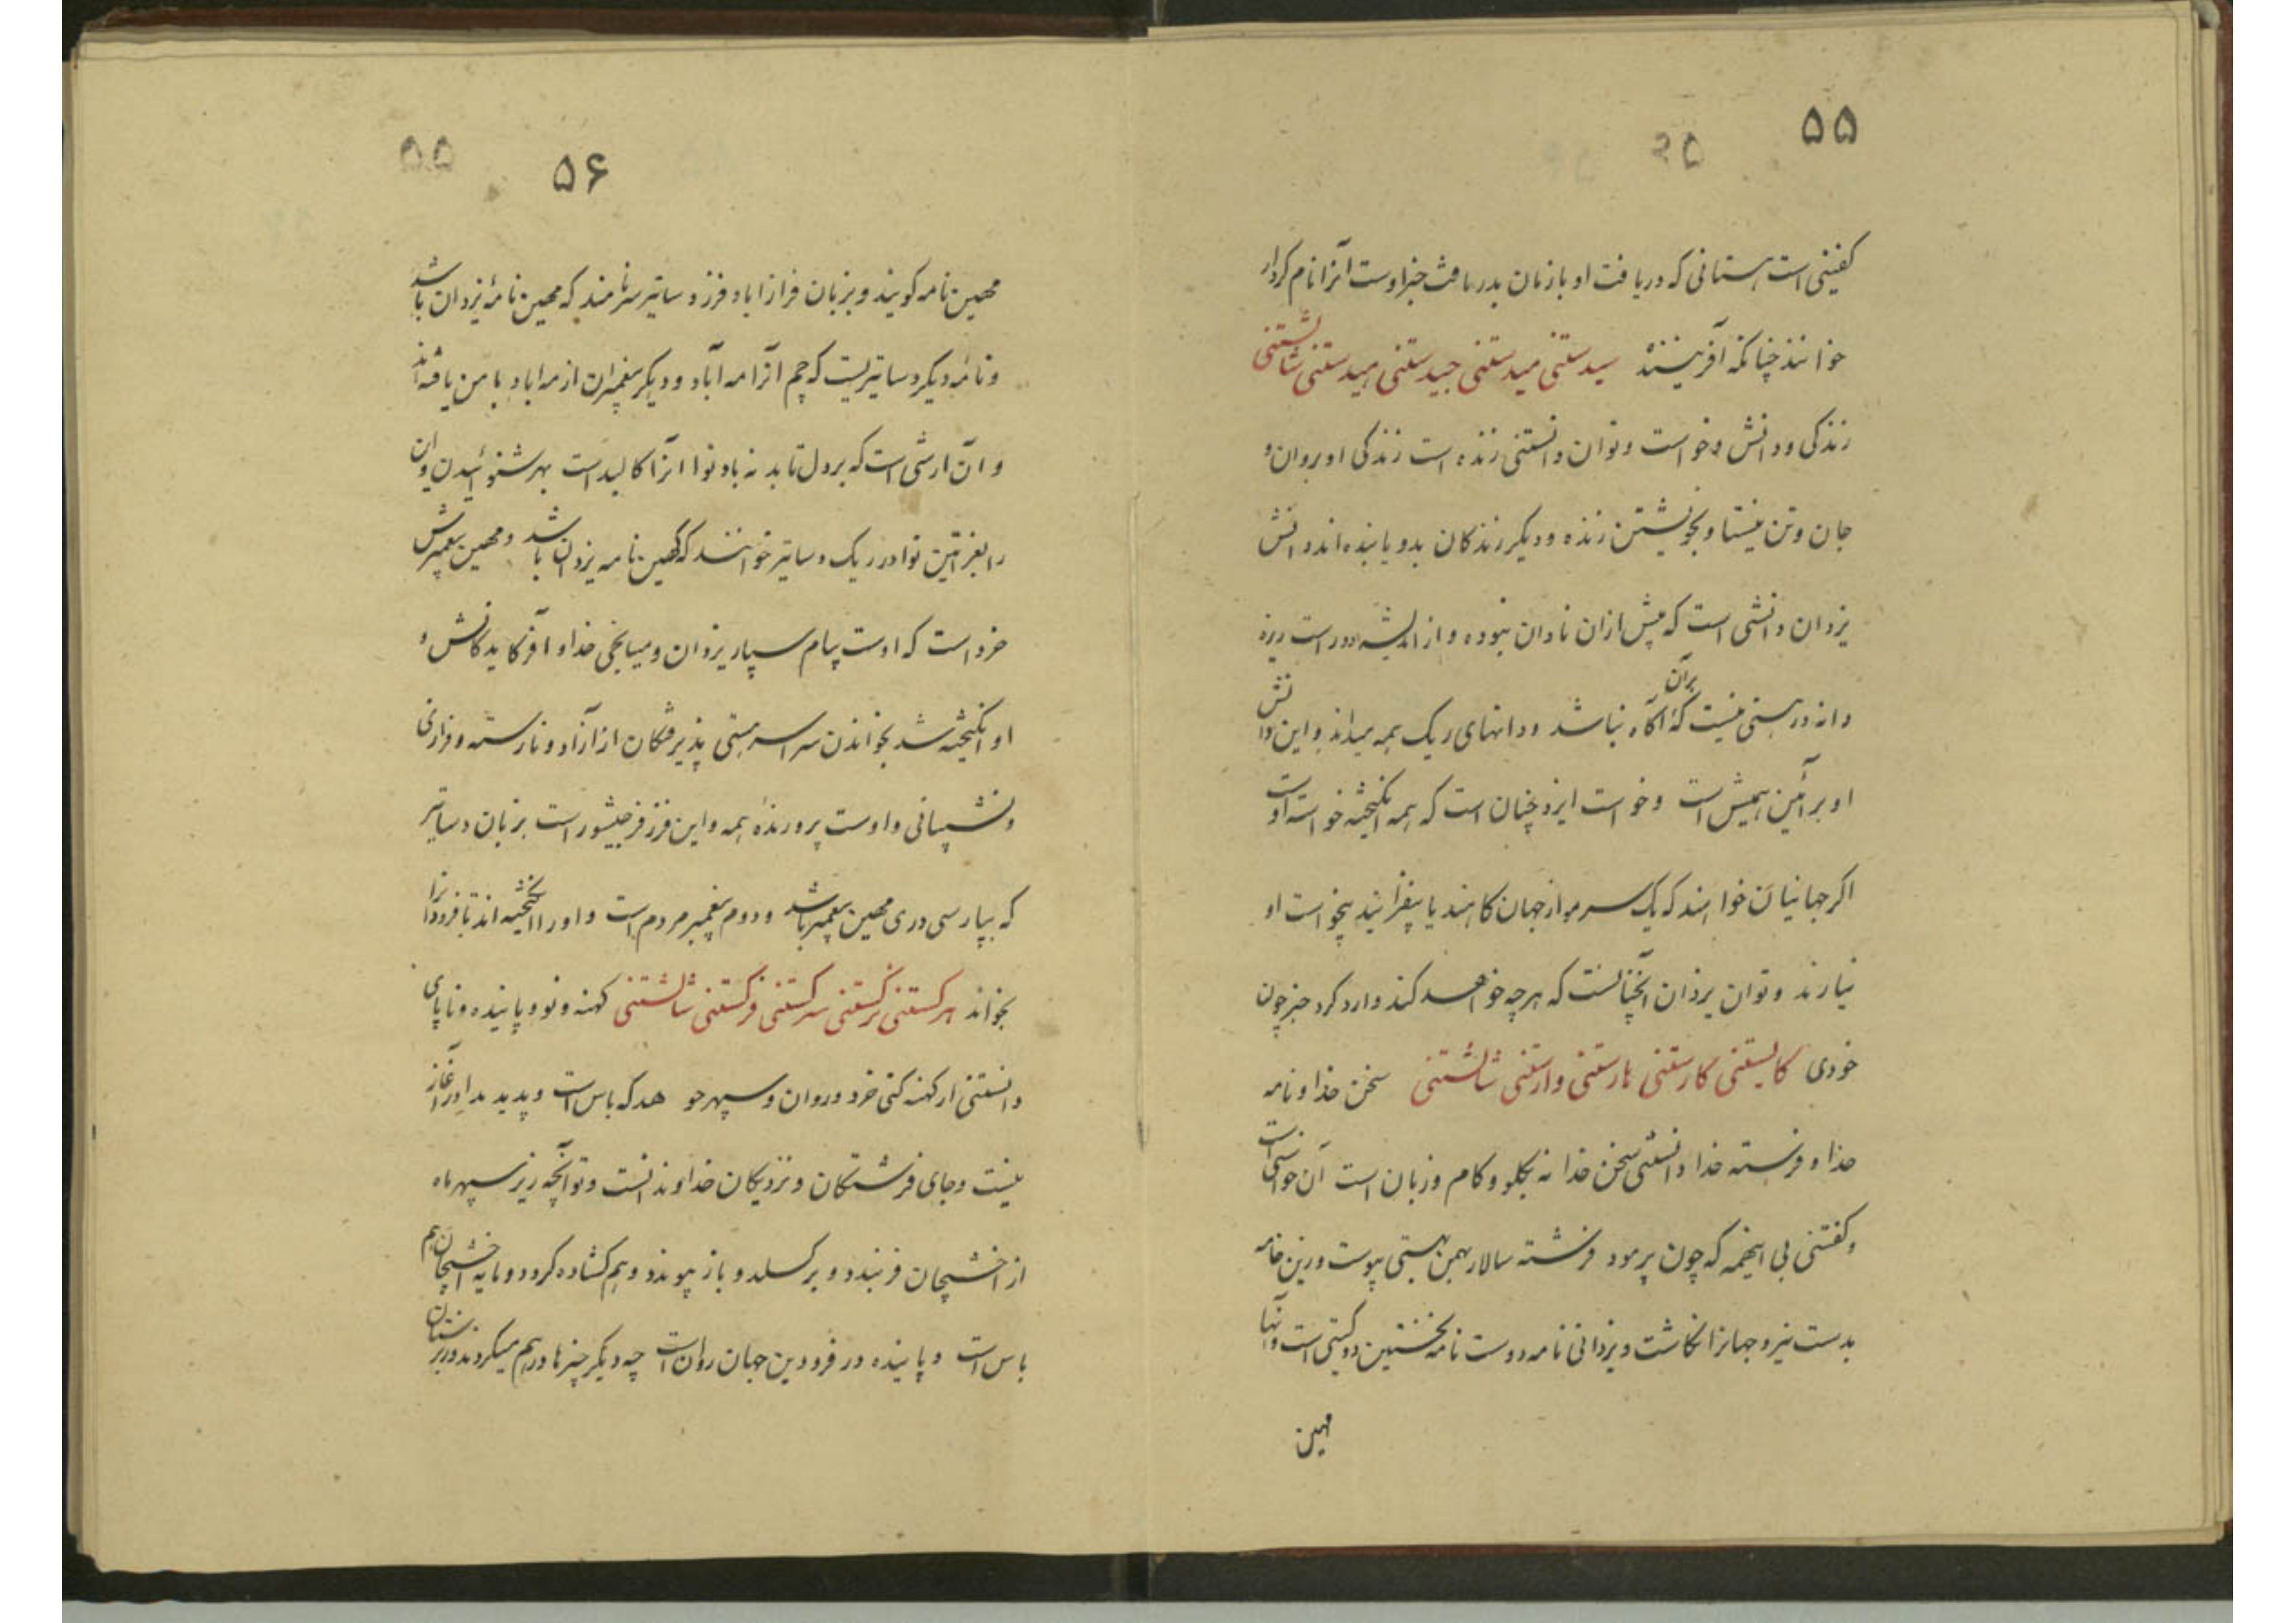 ۵۵
۲۵
کفتنی است هستانی که دریافت او بازمان بدریافت جز اوست آنرا نام کردار
خوانند چنانکه آفریننده سیدستنی میدستنی جیدستنی هیدستنی شالشتنی
زندکی و دانش و خواست و توان دانستنی زنده است زندکی او بروان و
جان و تن نیستا و بخویشتن زنده و دیکر زندکان بدو پاینده اند دانش
یزدان دانشی است که پیش ازان نادان نبوده و از اندیشه دور است ریزه
دانه در هستی نیست که بران آکاه نباشد و دانهای ریک همه میداند و این دانش
او بر آئین همیش است و خواست ایزد چنان است که همه انکیخته خواسته اوست
اکر جهانیان خواهند که یک سرمو از جهان کاهند یا بیفزایند بیخواست او
نیارند و توان یزدان آنچنانست که هرچه خواهد کند و آرد کرد جز چون
خودی کالیستنی کارستنی هارستنی وارستنی شالشتنی سخن خدا و نامه
خدا و فرسته خدا دانستنی سخن خدا نه بکلو و کام و زبان است آن خواستی است
و کفتنی بی اینهمه که چون پرمود فرشته سالار بهمن بهستی پیوست و زین خامه
بدست نیرو جهانرا نکاشت و یزدانی نامه دوست نامه نخستین دوکیتی است و آنها
مهین
۵۶
۵۵
مهین نامه کویند و بزبان فرازاباد فرز دساتیرسرنامند که مهین نامهٔ یزدان باشد
و نامهٔ دیکر دساتیریست که چم آنرا مه آباد و دیکر پیغمبران از مه اباد با من یافته اند
و آن آرشی است که بر دل تابد نه باد نوا انرا کالبد است بهر شنوئیدن و این
را بفرزتین نوا در ریک دساتیر خوانند که کهین نامه یزدان باشد و مهین پیغمبرش
خرد است که اوست پیام سپار یزدان و میانجی خدا و آفریدکانش و
او انکیخته شد بخواندن سراسر هستی پذیرفتکان از آزاد و نارسته و فرازی
و نشیبانی و اوست پرورنده همه و این فرز فرجیشور است بزبان دساتیر
که بپارسی دری مهین پیغمبر باشد و دوم پیغمبر مردم است و اورا انکیخته اند تا فرودانرا
بخواند هرکستنی نرکستنی سرکستنی فرکستنی شالشتنی کهنه و نو و پاینده و ناپای
دانستنی از کهنه کتی خرد و روان و سپهر خواهد که باس است و پدید بدو را آغاز
نیست و جای فرشتکان و نزدیکان خداوند انست و نو آنچه زیر سپهر ماه
از اخشیجان فربندد و بر کسلد و باز پیوندد و هم کشاده کردد و مایه اخشیجان هم
باس است و پاینده در فرودین جهان روان است چه دیکر چیزها درهم میکردند و در برستان